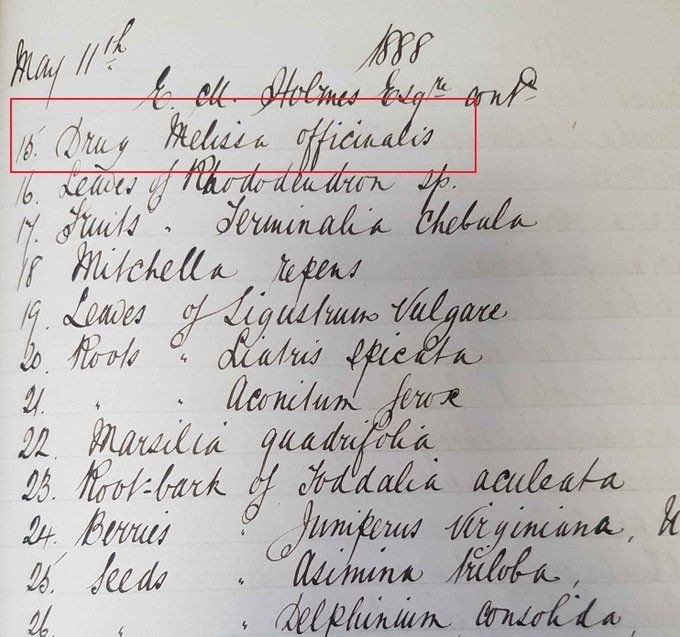 May 11th 1888
E. M. Holmes Esqre contd
15. Drug Melissa officinalis
16. Leaves of Rhododendron sp.
17. Fruits " Terminalia chebula
18 Mitchella repens
19. Leaves of Ligustrum Vulgare
20. Roots " Liatris spicata
21. " " Aconitum ferox
22. Marsilia quadrifolia
23. Root-bark of Toddalia aculeata
24. Berries " Juniperus Virginiana,
25. Seeds " Asimina triloba,
26. " " Delphinium consolida,